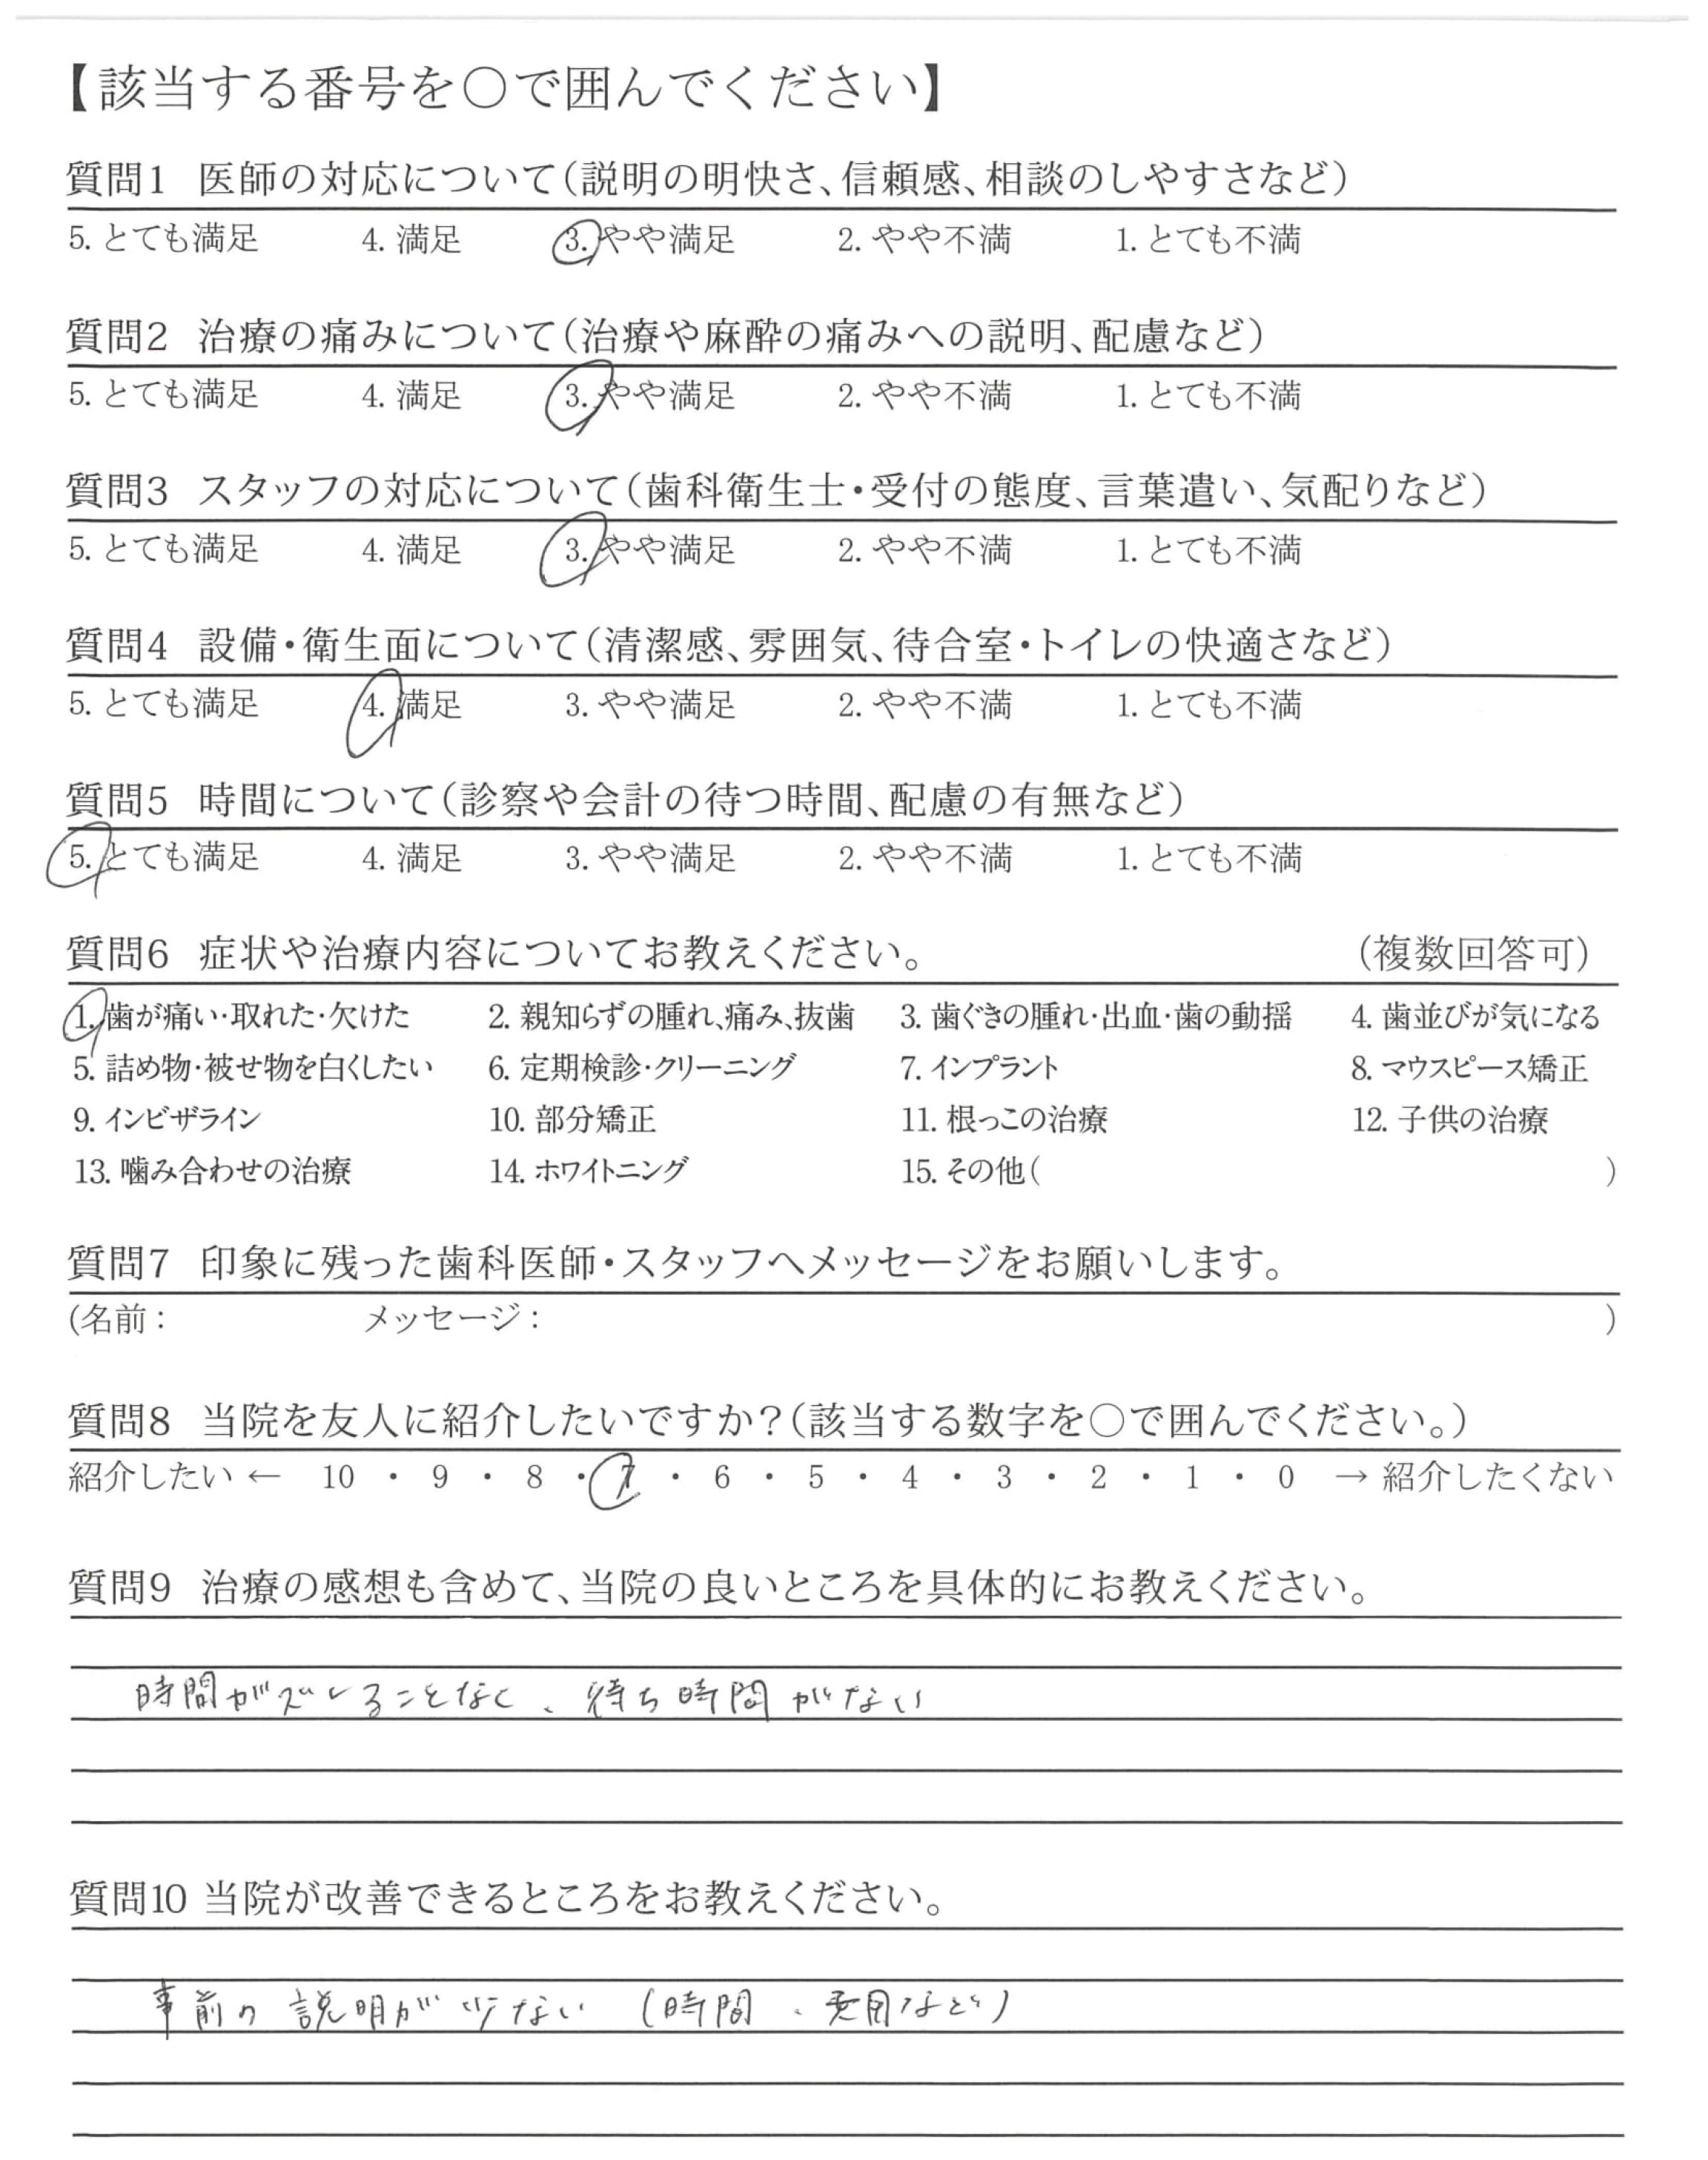 【該当する番号を○で囲んでください】
質問1 医師の対応について(説明の明快さ、信頼感、相談のしやすさなど)
5. とても満足 4. 満足 3. やや満足 2. やや不満 1. とても不満
質問2 治療の痛みについて(治療や麻酔の痛みへの説明、配慮など)
5. とても満足 4. 満足 3. やや満足 2. やや不満 1. とても不満
質問3 スタッフの対応について(歯科衛生士・受付の態度、言葉遣い、気配りなど)
5. とても満足 4. 満足 3. やや満足 2. やや不満 1. とても不満
質問4 設備・衛生面について(清潔感、雰囲気、待合室・トイレの快適さなど)
5. とても満足 4. 満足 3. やや満足 2. やや不満 1. とても不満
質問5 時間について(診察や会計の待つ時間、配慮の有無など)
5. とても満足 4. 満足 3. やや満足 2. やや不満 1. とても不満
質問6 症状や治療内容についてお教えください。 (複数回答可)
1. 歯が痛い・取れた・欠けた 2. 親知らずの腫れ、痛み、抜歯 3. 歯ぐきの腫れ・出血・歯の動揺 4. 歯並びが気になる
5. 詰め物・被せ物を白くしたい 6. 定期検診・クリーニング 7. インプラント 8. マウスピース矯正
9. インビザライン 10. 部分矯正 11. 根っこの治療 12. 子供の治療
13. 噛み合わせの治療 14. ホワイトニング 15. その他( )
質問7 印象に残った歯科医師・スタッフへメッセージをお願いします。
(名前: メッセージ: )
質問8 当院を友人に紹介したいですか?(該当する数字を○で囲んでください。)
紹介したい ← 10 ・ 9 ・ 8 ・ 7 ・ 6 ・ 5 ・ 4 ・ 3 ・ 2 ・ 1 ・ 0 → 紹介したくない
質問9 治療の感想も含めて、当院の良いところを具体的にお教えください。
時間がズレることなく、待ち時間がない
質問10 当院が改善できるところをお教えください。
事前の説明が少ない (時間、費用など)